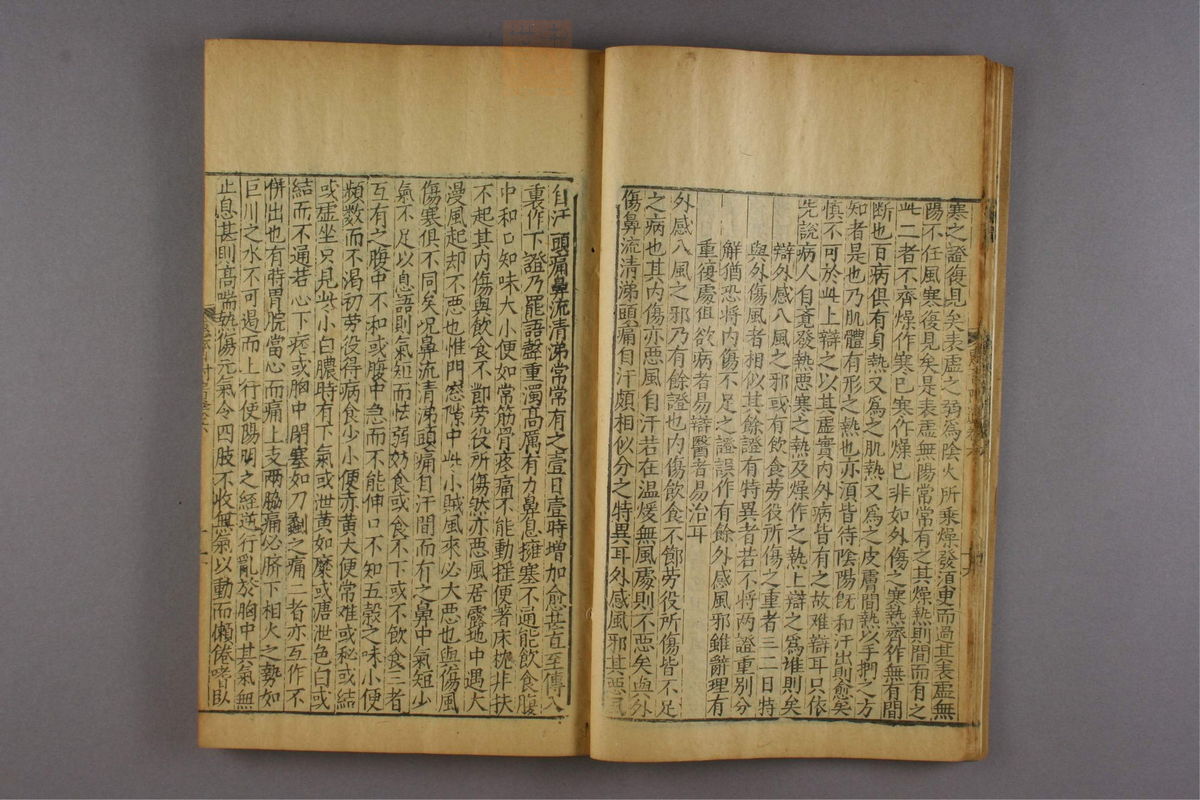 寒之證復見矣表虛之弱爲陰火所乘燥發須臾而過其表虛無
陽不任風寒復見矣是表虛無陽常常有之其燥熱則間而有之
此二者不齊燥作寒已寒作燥已非如外傷之寒熱齊作無有間
斷也百病俱有身熱又爲之肌熱又爲之皮膚間熱以手捫之方
知者是也乃肌體有形之熱也亦須皆待陰陽旣和汗出則愈矣
慎不可於此上辯之以其虛實內外病皆有之故难辯耳只依
先說病人自覺發熱惡寒之熱及燥作之熱上辯之爲准則矣
辯外感八風之邪或有飮食勞役所傷之重者三二日特
與外傷風者相似其餘證有特異者若不将两證重別分
解猶恐将內傷不足之證誤作有餘外感風邪雖辭理有
重復處但欲病者易辯醫者易治耳
外感八風之邪乃有餘證也內傷飮食不節劳役所傷皆不足
之病也其內傷亦惡風自汗若在温煖無風處則不惡矣與外
傷鼻流清涕頭痛自汗頗相似分之特異耳外感風邪其惡風
自汗頭痛鼻流清涕常常有之壹日壹時增加愈甚直至傳入
裏作下證乃罷語聲重濁高厲有力鼻息擁塞不通能飮食腹
中和口知味大小便如常筋骨疼痛不能動揺便著床枕非扶
不起其內傷與飮食不節劳役所傷然亦惡風居露地中遇大
漫風起却不惡也惟門窓隙中此小賊風來必大惡也與傷風
傷寒俱不同矣况鼻流清涕頭痛自汗間而有之鼻中氣短少
氣不足以息語則氣短而怯弱妨食或食不下或不飮食三者
互有之腹中不和或腹中急而不能伸口不知五穀之味小便
頻數而不渴初劳役得病食少小便赤黄大便常难或秘或結
或虛坐只見此小白膿時有下氣或泄黄如糜或溏泄色白或
結而不通若心下痞或胸中閉塞如刀劙之痛二者亦互作不
併出也有時胃脘當心而痛上支两脇痛必臍下相火之勢如
巨川之水不可遏而上行使陽明之經逆行亂於胸中其氣無
止息甚則高喘熱傷元氣令四肢不收無氣以動而懶倦嗜臥